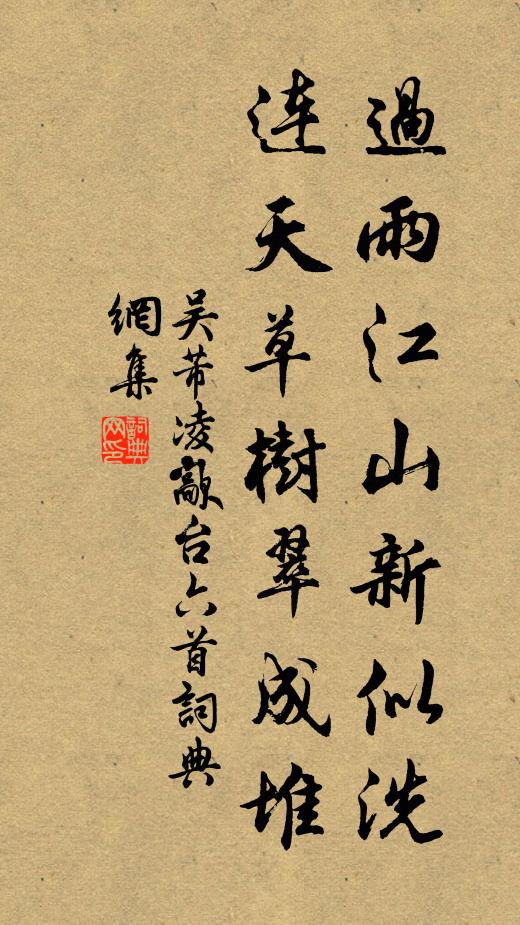 過雨江山新似洗
連天草樹翠成堆
吳芾凌歊台六首詞典
網集
詞典
网印